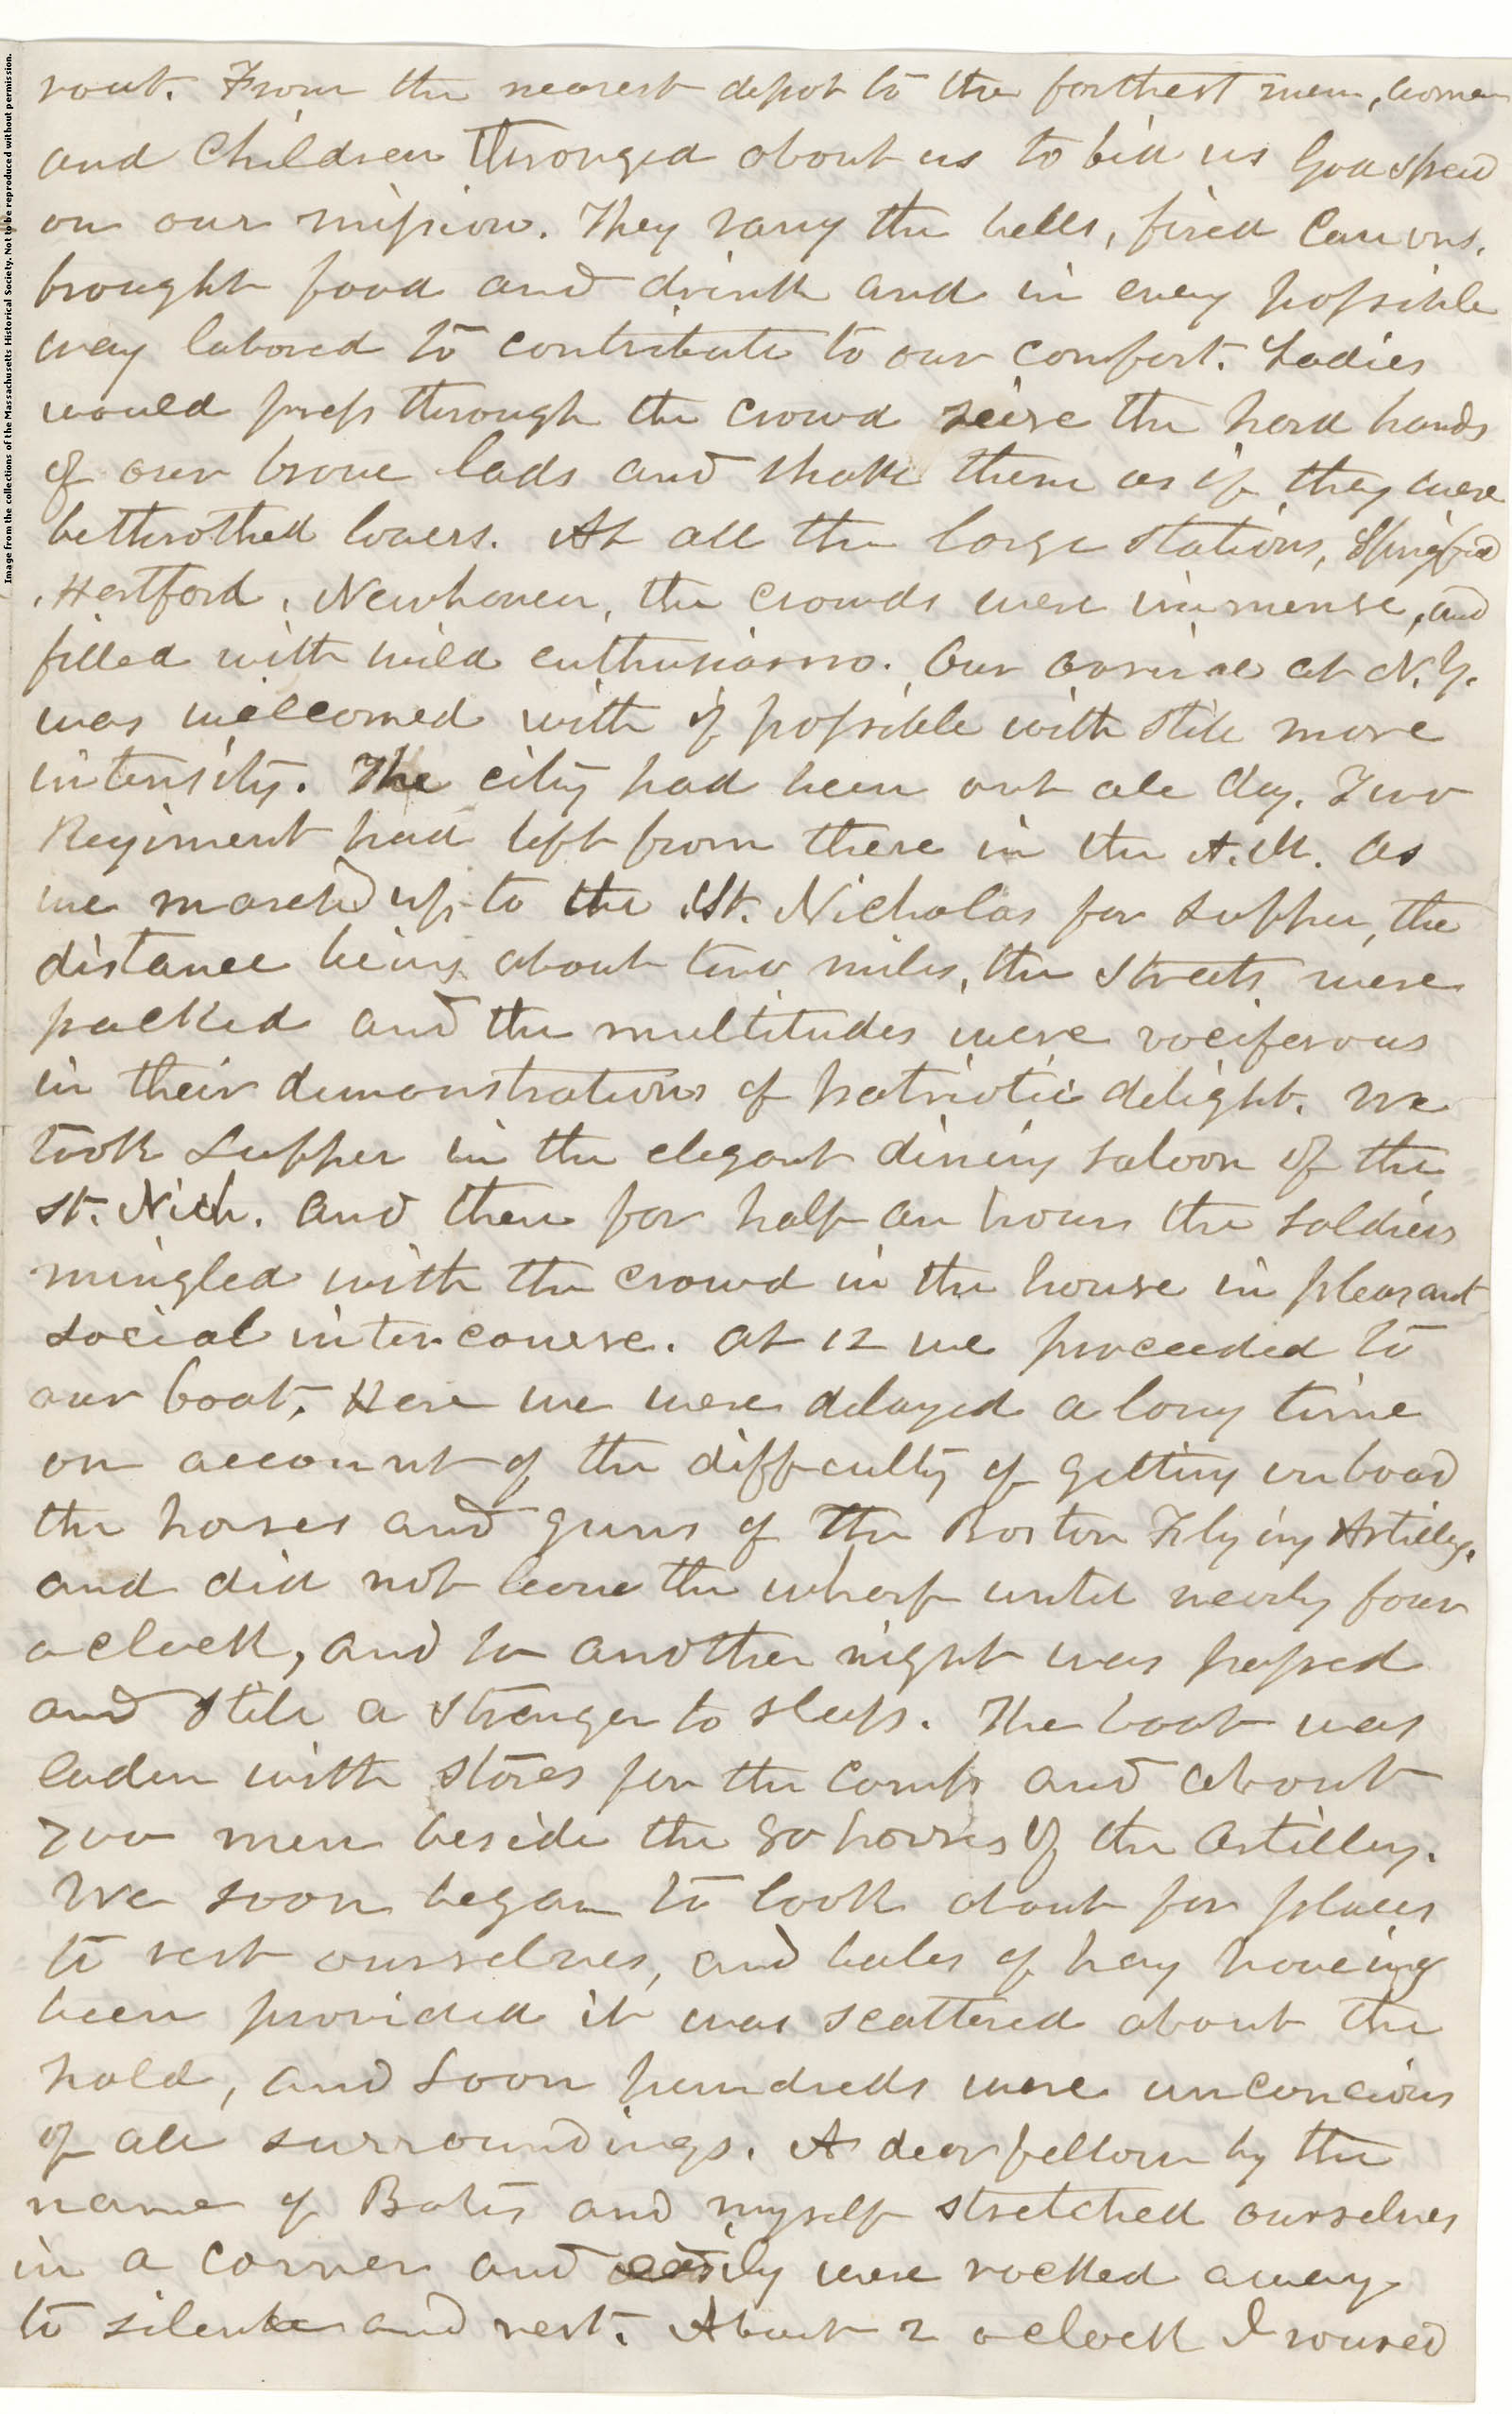 Image from the collections of the Massachusetts Historical Society. Not to be reproduced without permission.
rout. From the nearest depot to the farthest men, women
and Children thronged about us to bid us God speed
on our mission. They rang the bells, fired Canons,
brought food and drink and in every possible
way labored to contribute to our comfort. Ladies
would press through the crowd seize the hard hands
of our brave lads and shake them as if they were
betthrothed lovers. At all the large stations, Springfied
, Hartford, Newhaven, the crowds were immense, and
filled with wild enthusiasm. Our arrival at N.Y.
was welcomed with if possible with still more
intensity. The city had been out all day. Two
Regiment had left from there in the A.M. As
we marchd up to the St. Nicholas for supper, the
distance being about two miles, the streets were
packed and the multitudes were vociferous
in their demonstrations of patriotic delight. We
took supper in the elegant dining saloon of the
St. Nich. and then for half an hour the soldiers
mingled with the crowd in the house in pleasant
social intercourse. At 12 we proceeded to
our boat. Here we were delayed a long time
on account of the difficulty of getting on board
the horses and guns of the Boston Flying Artillery.
and did not leave the wharf until nearly four
oclock, and so another night was passed
and still a stranger to sleep. The boat was
laden with stores for the camp and about
700 men beside the 80 horses of the Artillery.
We soon began to look about for places
to rest ourselves, and bales of hay haveing
been provided it was scattered about the
hold, and soon hundreds were unconcious
of all surroundings. A dear fellow by the
name of Bates and myself stretched ourselves
in a corner and easily were rocked away
to silence and rest. About 2 oclock I roused